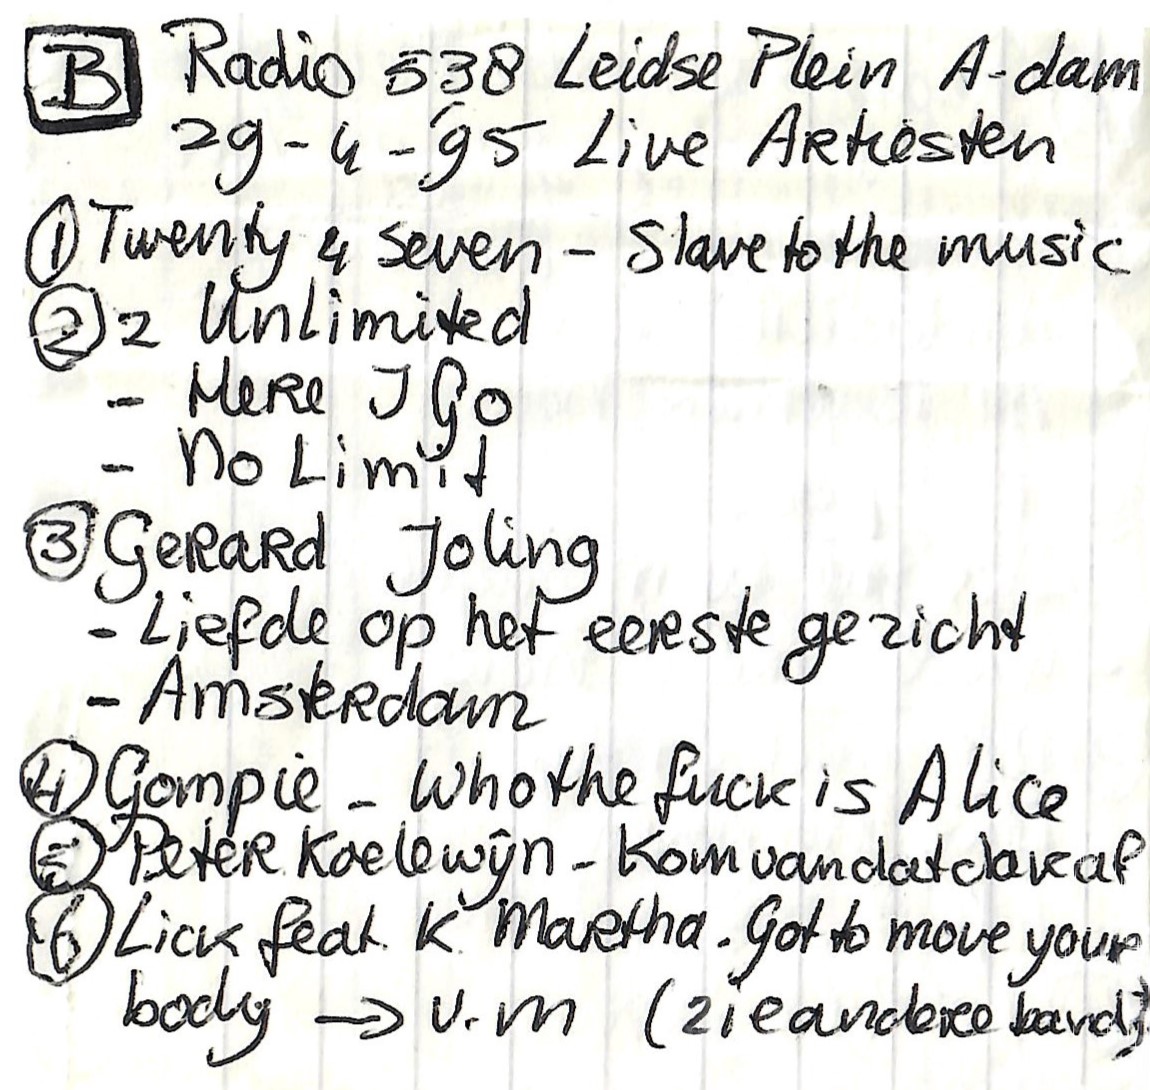 B Radio 538 Leidse Plein A-dam
29-4-'95 Live Artiesten
① Twenty 4 seven - Slave to the music
② 2 Unlimited
- Here I Go
- No Limit
③ Gerard Joling
- Liefde op het eerste gezicht
- Amsterdam
④ Gompie - Who the fuck is Alice
⑤ Peter Koelewijn - Kom van dat dak af
⑥ Lick feat. K Martha. Got to move your
body → v.m (zie andere band)